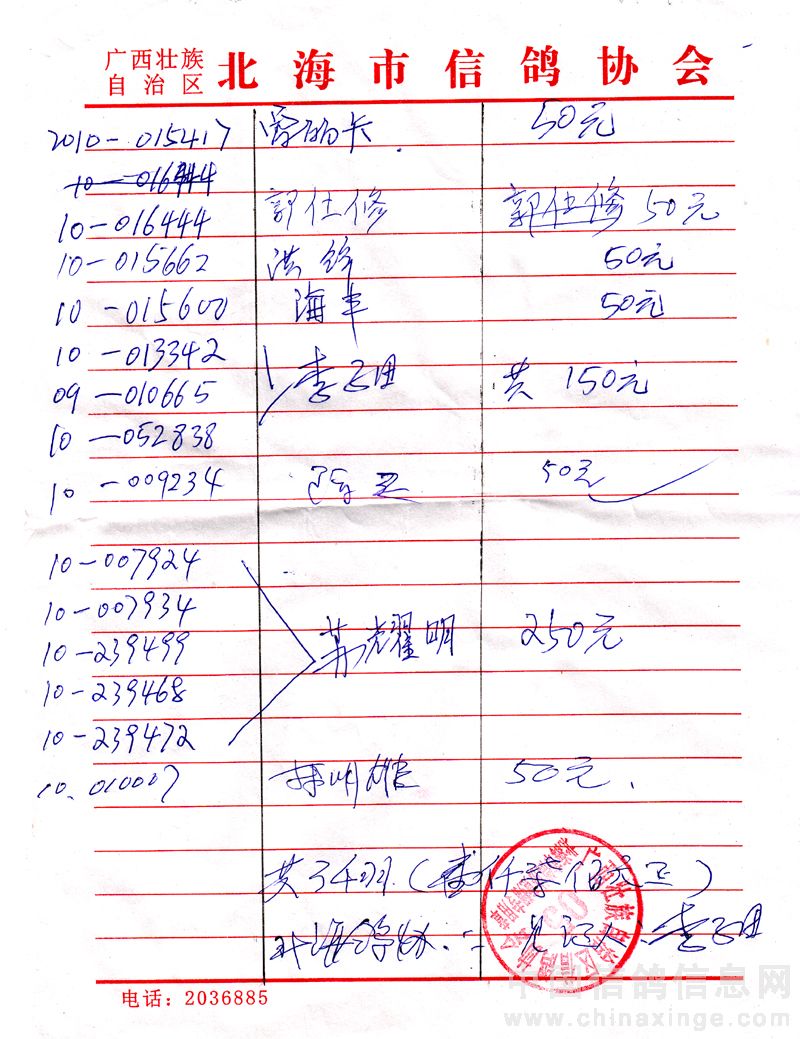 广西壮族
自治区 北海市信鸽协会
2010-015417 卡 50元
10-016444
10-016444 郭仕修 郭仕修 50元
10-015662 洪 50元
10-015600 海丰 50元
10-013342
09-010665 李 共 150元
10-052838
10-009234 50元
10-007924
10-007934
10-239499 苏耀明 250元
10-239468
10-239472
10.010007 林明雄 50元.
共 羽(壹仟 佰元正)
北海鸽协. 见证人: 李
广西壮族自治区
电话:2036885
中国信鸽信息网
www.chinaxinge.com